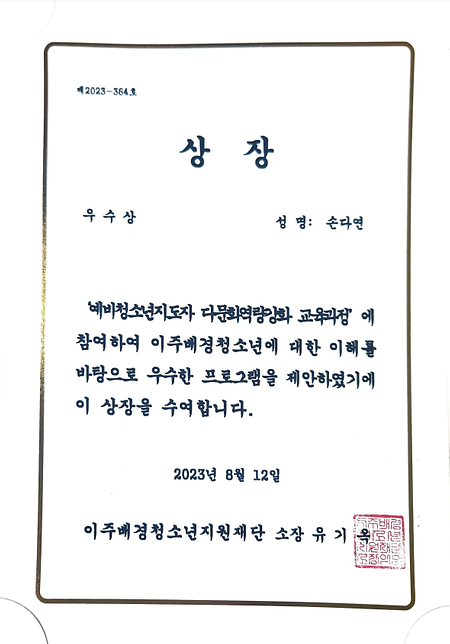 제2023-364호
상 장
우 수 상
성 명: 손다연
'예비청소년지도자 다문화역량강화 교육과정'에
참여하여 이주배경청소년에 대한 이해를
바탕으로 우수한 프로그램을 제안하였기에
이 상장을 수여합니다.
2023년 8월 12일
이주배경청소년지원재단 소장 유 기 옥